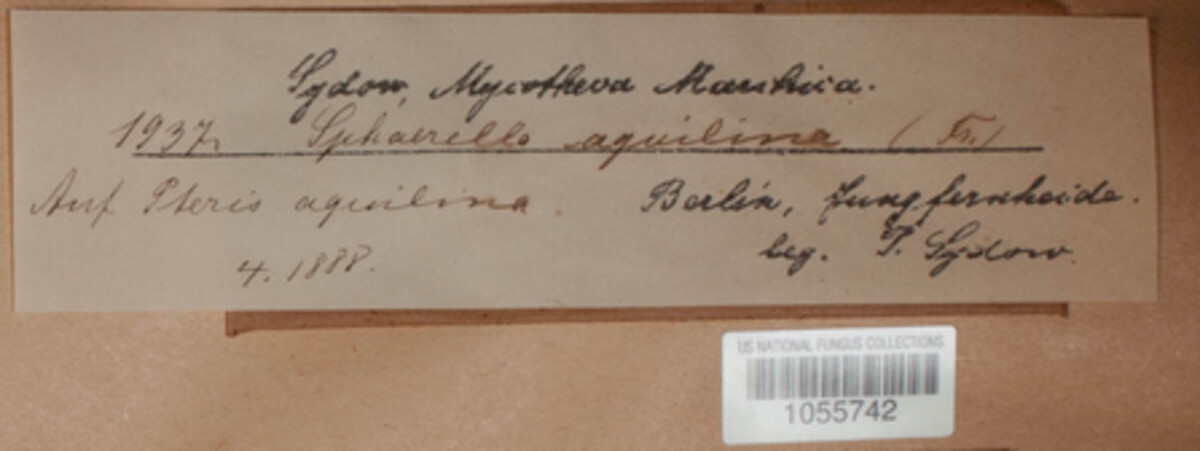 Sydow, Mycotheca Marchica.
1937. Sphaerella aquilina (Fr.)
Auf Pteris aquilina. Berlin, Jungfernheide.
4. 1888. leg. P. Sydow.
US NATIONAL FUNGUS COLLECTIONS
1055742